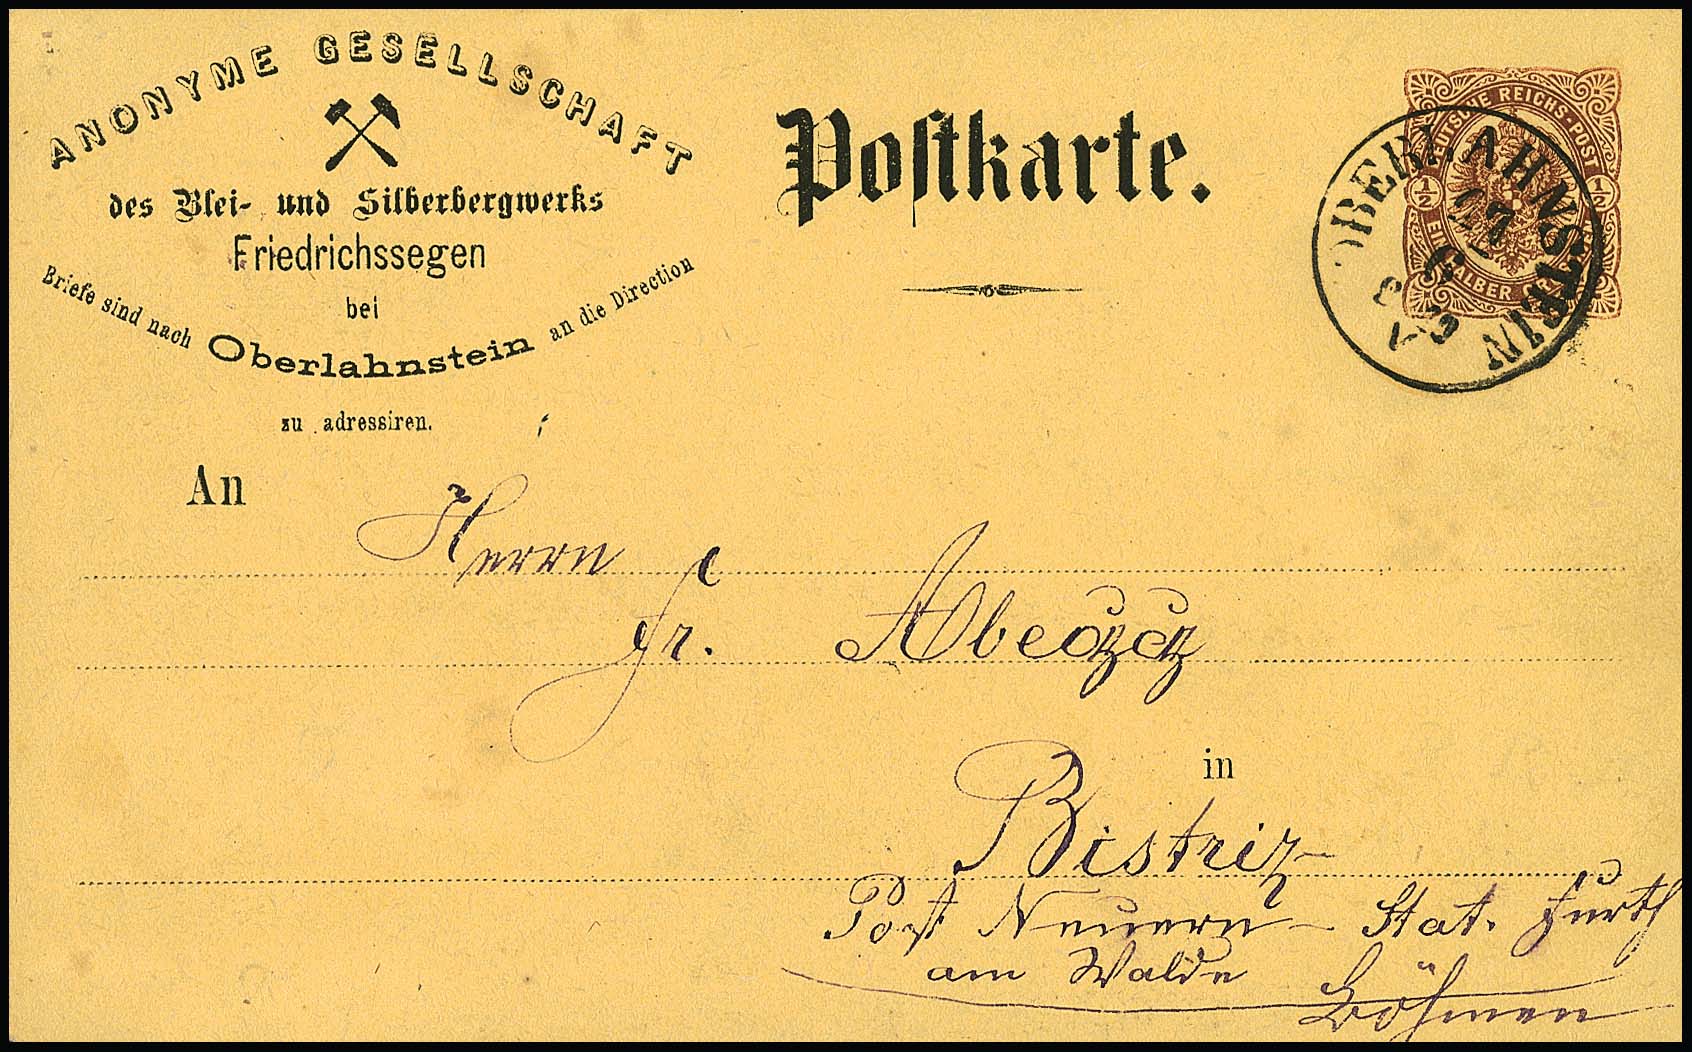 ANONYME GESELLSCHAFT
des Blei- und Silberbergwerks
Friedrichssegen
bei
Briefe sind nach Oberlahnstein an die Direction
zu adressiren.
Postkarte.
DEUTSCHE REICHS-POST
1/2 1/2
EIN HALBER GROSCHEN
OBERLAHNSTEIN
An
Herrn
Fr.
in
Bistriz
Post Neuern - Stat. Furth
am Walde
Böhmen